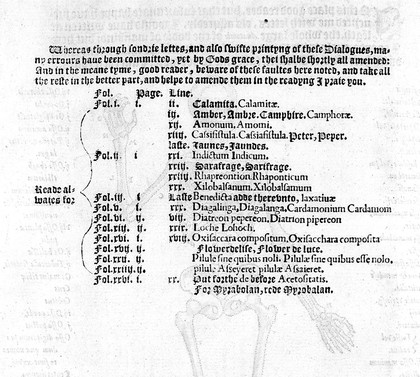 Whereas through sondrie lettes, and also swifte printyng of these Dialogues, ma-
ny errours haue been committed, yet by Gods grace, thei shalbe shortly all amended:
And in the meane tyme, good reader, beware of these faultes here noted, and take all
the reste in the better part, and helpe to amende them in the readyng I praie you.
Fol. Page. Line.
Fol.i. i ii. Calamita. Calamitæ.
iij. Amber, Ambre. Camphire, Camphoræ.
xij. Amonum, Amomi.
xiij. Cassifistula. Cassiafistula. Peter, Peper.
laste. Jaunes, Jaundes.
Fol.ij. i xxi. Indistum Indicum.
xxiij. Sarafrage, Sarifrage.
xiiij Rhapreontion, Rhaponticum
xxx. Xilobalsanum. Xilobalsamum
Reade al-
waies for
Fol.iij. i Laste Benedicta adde therebnto, laxatiuæ
Fol.v. i xxx. Diagalinga, Diagalanga. Cardamonium Cardamom
Fol.vi. ij. viij. Diatreon pepereon, Diatrion pipereon
Fol.xiij. ij. xix. Loche Lohoch.
Fol.xvi. i xviij. Oxisaccara compositum, Oxisacchara composita
Fol.xvij. ij. Flowerdelise, Flower de luce.
Fol.xxi. ij. Pilule sine quibus noli. Pilulæ sine quibus esse nolo.
Fol.xxiiij. ij. pilulæ Asseyeret pilulæ Assaieret.
Fol.xvi. i. xx. Put forthe de before Acetositatis.
For Myrabolan, rede Myrobalan.